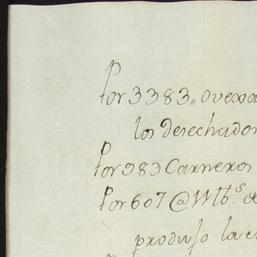 Por 3383,, ovexa
los desechado
Por 983 Carneros
Por 607 @ 11 lb.s de
produjo la e